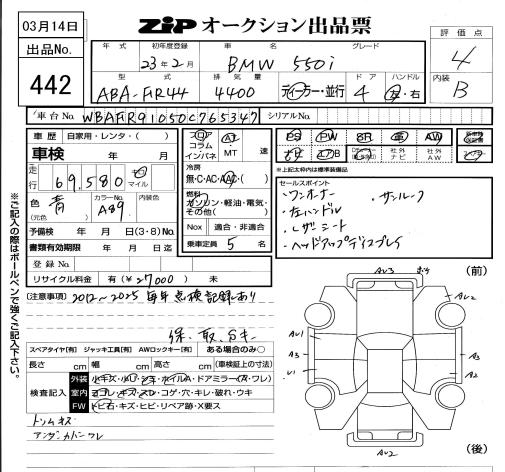 03月14日
ZIP オークション出品票
評価点
4
出品No.
442
年式 初年度登録 車名 グレード
23年2月 BMW 550i
内装
B
型式 排気量 ドア ハンドル
ABA-FR44 4400 ディーラー・並行 4 左・右
車台No. WBAFR91050C765347 シリアルNo.
車歴 自家用・レンタ・( )
車検 年 月
フロア AT
コラム
インパネ MT 速
PS PW SR 革 AW
エアB
社外ナビ 社外AW
※上記太枠内は標準装備品
走行 69,580 キロ マイル
冷房
無・C・AC・AAC・( )
燃料
ガソリン・軽油・電気・その他( )
色 青
(元色)
カラーNo. A89
内装色
予備検 年 月 日(3・8)No.
書類有効期限 年 月 日迄
Nox 適合・非適合
乗車定員 5 名
登録No.
リサイクル料金 有(¥27000) 未
セールスポイント
・ワンオーナー ・サンルーフ
・左ハンドル
・レザーシート
・ヘッドアップディスプレイ
※ご記入の際はボールペンで強くご記入下さい。
(注意事項) 2012〜2025 毎年点検記録あり
保、取、Sキー
スペアタイヤ[有] ジャッキ工具[有] AWロックキー[有] ある場合のみ○
長さ cm 幅 cm 高さ cm (車検証上の寸法)
検査記入
外装 小キズ・小凹・シミ・ホイルA・ドアミラー(A・ワレ)
室内 ヨゴレ・キズ・スレ・コゲ・穴・キレ・破れ・ウキ
FW トビ石・キズ・ヒビ・リペア跡・X要ス
トランクキズ
アンダーカバーワレ
(前)
AU3
AU2
AU1
A3
U1
A3
A2
AU2
(後)